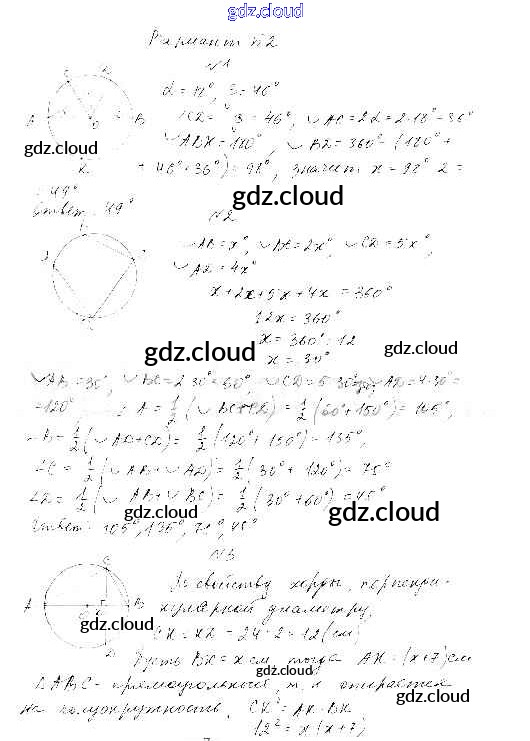 gdz.cloud
Вариант №2
№1
α = 18°, β = 46°
∪CD = β = 46°, ∪AC = 2α = 2·18 = 36°
∪ADK = 180°, ∪BD = 360° - (180° +
+ 46° + 36°) = 98°, значит x = 98° : 2 =
= 49°
Ответ: 49°
№2
∪AB = x°, ∪BC = 2x°, ∪CD = 5x°,
∪AD = 4x°
x + 2x + 5x + 4x = 360°
12x = 360°
x = 360° : 12
x = 30°
∪AB = 30°, ∪BC = 2·30° = 60°, ∪CD = 5·30° ∪AD = 4·30° =
= 120°, ∠A = 1/2 (∪BC + CD) = 1/2 (60° + 150°) = 105°,
∠B = 1/2 (∪AD + CD) = 1/2 (120° + 150°) = 135°,
∠C = 1/2 (∪AB + ∪AD) = 1/2 (30° + 120°) = 75°
∠D = 1/2 (∪AB + ∪BC) = 1/2 (30° + 60°) = 45°
Ответ: 105°, 135°, 75°, 45°
№3
По свойству хорды, перпенди-
кулярной диаметру,
CK = KD = 24 : 2 = 12 (см)
Пусть BK = x см, тогда AK = (x+7) см
∠ABC - прямоугольный, т.к. опирается
на полуокружность, CK² = AK · BK
12² = x(x+7)